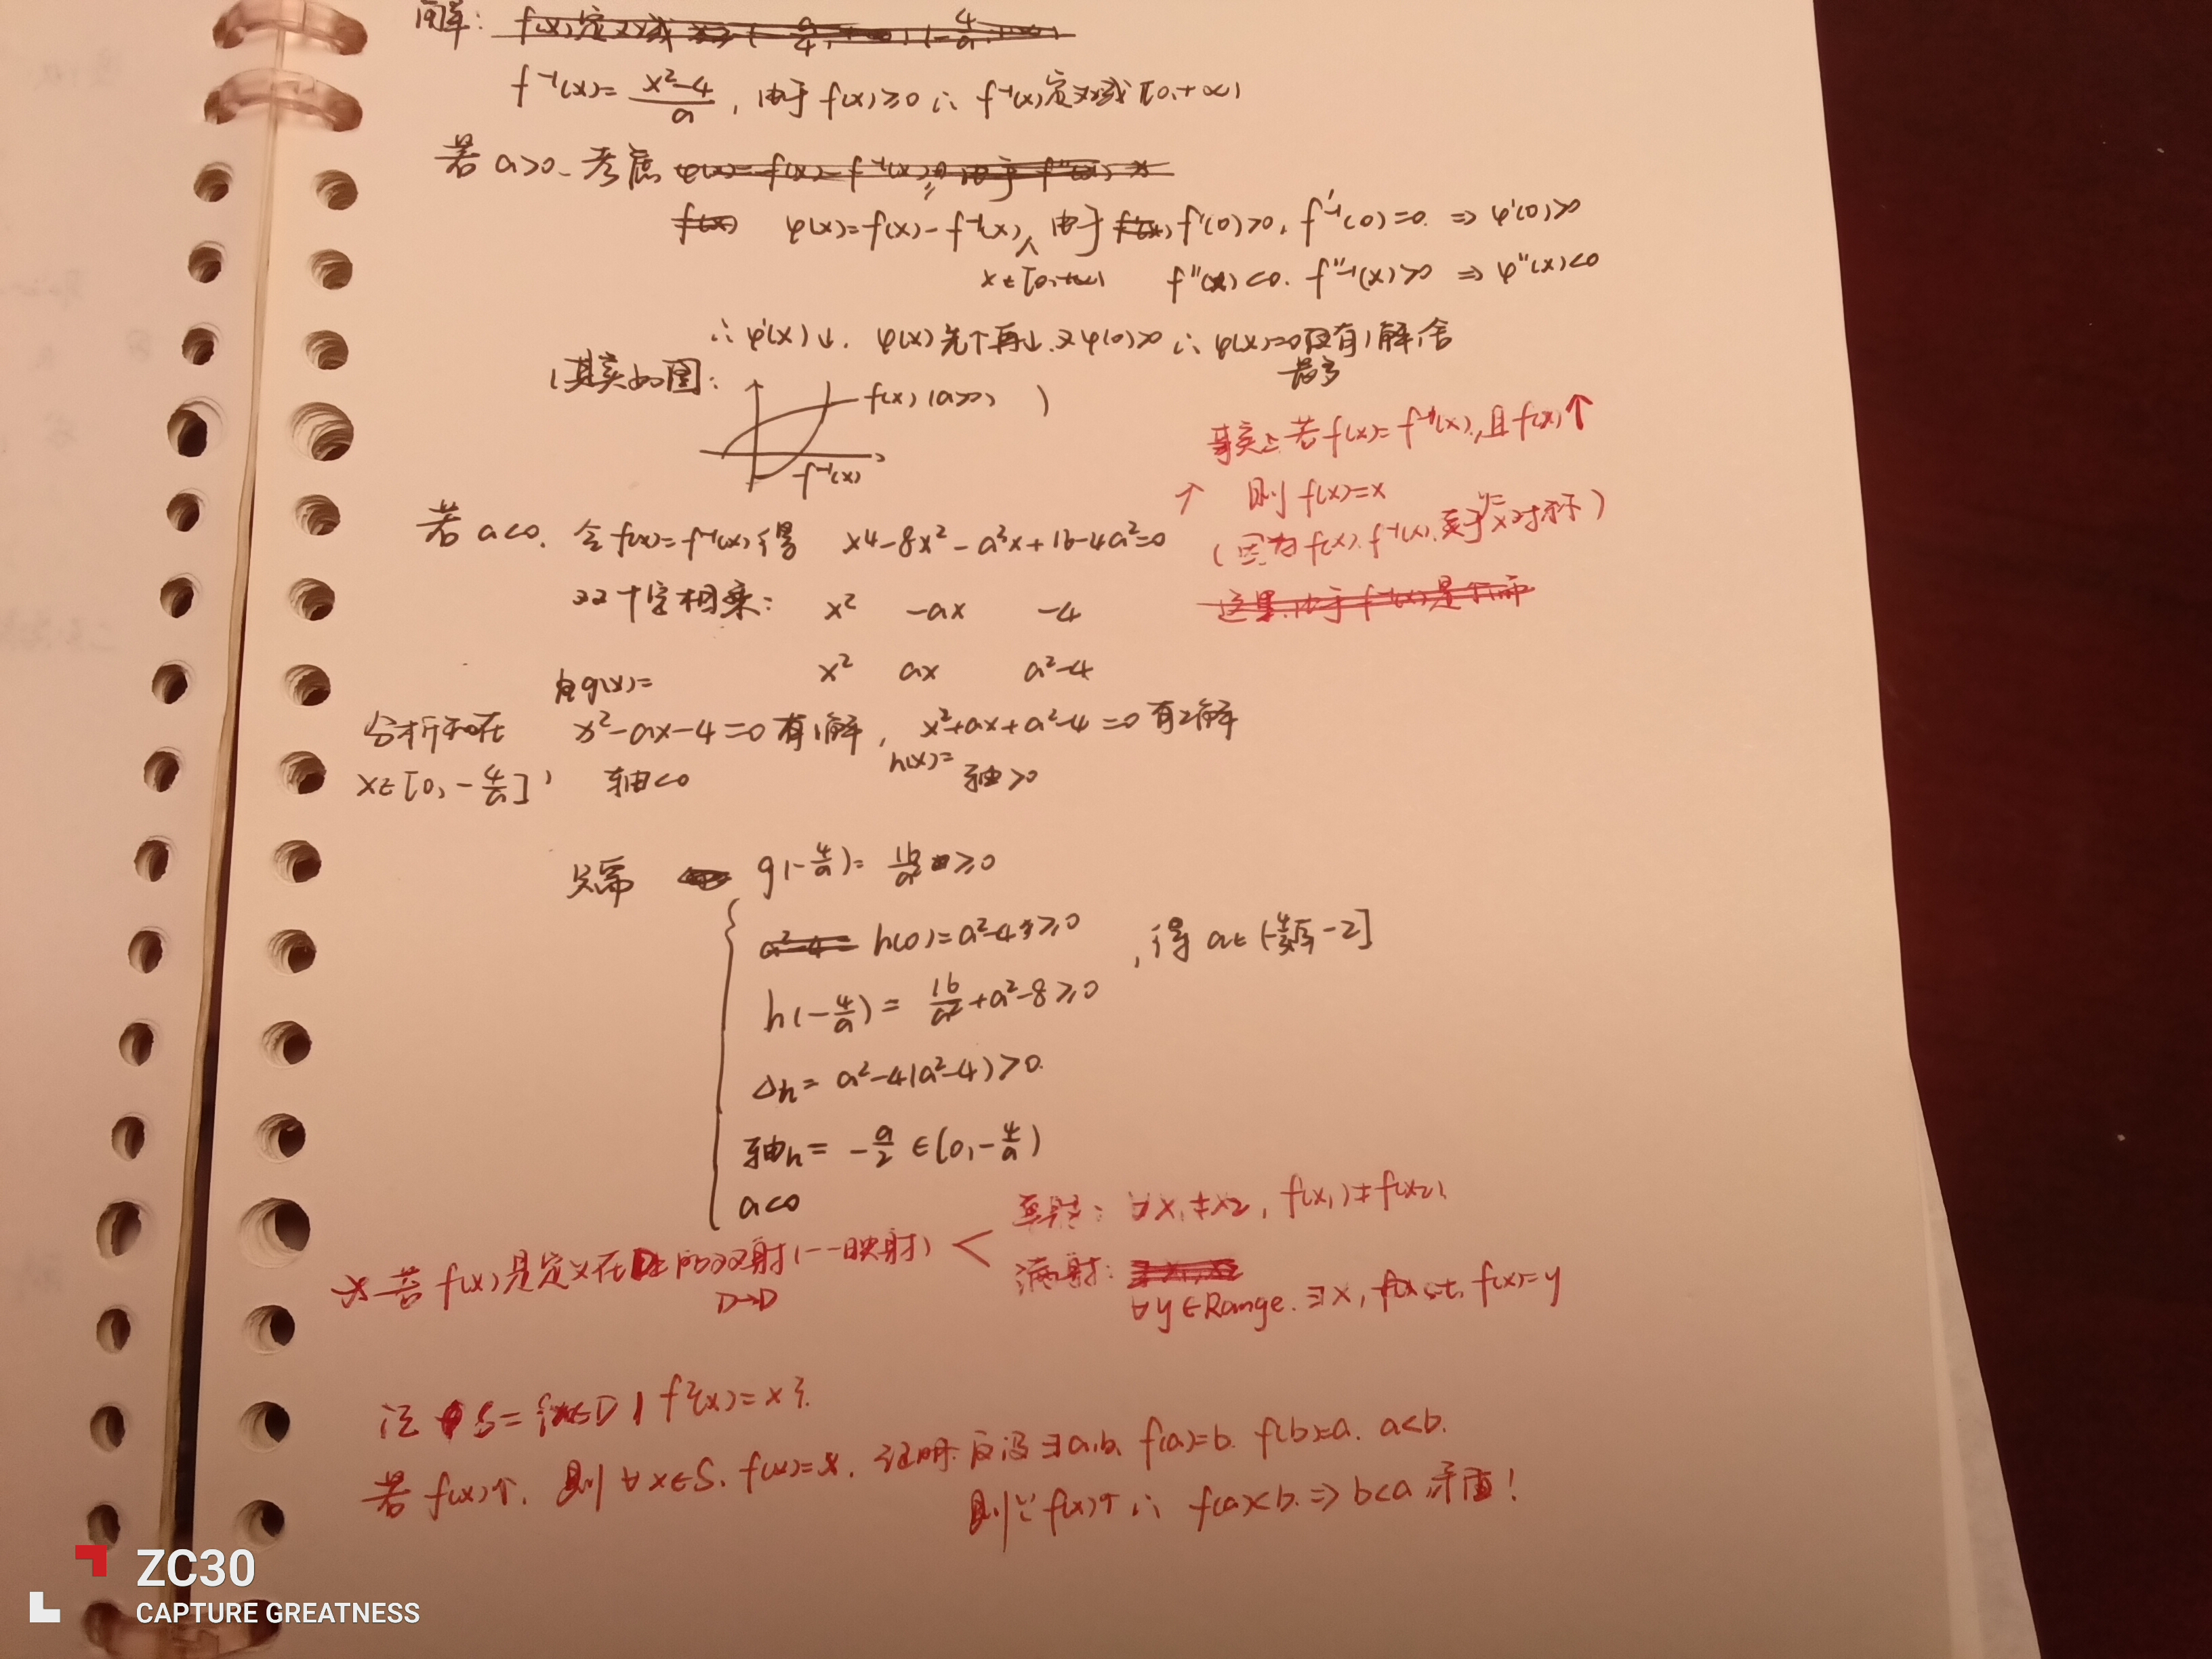 解:
f⁻¹(x)= (x²-4)/a , 由于 f(x)≥0 ∴ f⁻¹(x)定义域[0,+∞)
若 a>0. 考虑
φ(x)=f(x)-f⁻¹(x), 由于 f'(0)>0, f'⁻¹(0)=0. ⇒ φ'(0)>0
x∈[0,+∞) f''(x)<0. f''⁻¹(x)>0 ⇒ φ''(x)<0
∴ φ'(x)↓. φ(x)先↑再↓. 又φ(0)>0 ∴ φ(x)=0 有1解,舍
最多
(其实如图:
f(x) (a>0) )
f⁻¹(x)
其实上若 f(x)=f⁻¹(x), 且f(x)↑
↑ 则 f(x)=x
(因为 f(x). f⁻¹(x).关于y=x对称)
若 a<0. 令 f(x)=f⁻¹(x)得 x⁴-8x²-a³x+16-4a²=0
双十字相乘: x² -ax -4
x² ax a²-4
g(x)=
分析知在 x²-ax-4=0 有1解, x²+ax+a²-4=0 有2解
h(x)=
x∈[0,-4/a], 轴<0 轴>0
只需 g(-4/a)= 16/a² ≥0
h(0)=a²-4≥0
h(-4/a)= 16/a²+a²-8≥0
, 得 a∈(-4/3√3,-2]
Δh= a²-4(a²-4)>0.
轴h= -a/2 ∈(0,-4/a)
a<0
※ 若 f(x)是定义在D上的双射(一一映射) <
D→D
单射: ∀x₁≠x₂, f(x₁)≠f(x₂)
满射:
∀y∈Range. ∃x, s.t. f(x)=y
记 S={x∈D | f²(x)=x}.
若 f(x)↑. 则 ∀x∈S. f(x)=x. 证明: 反设∃a,b. f(a)=b. f(b)=a. a<b.
则∵f(x)↑ ∴ f(a)<b. ⇒ b<a 矛盾!
ZC30
CAPTURE GREATNESS